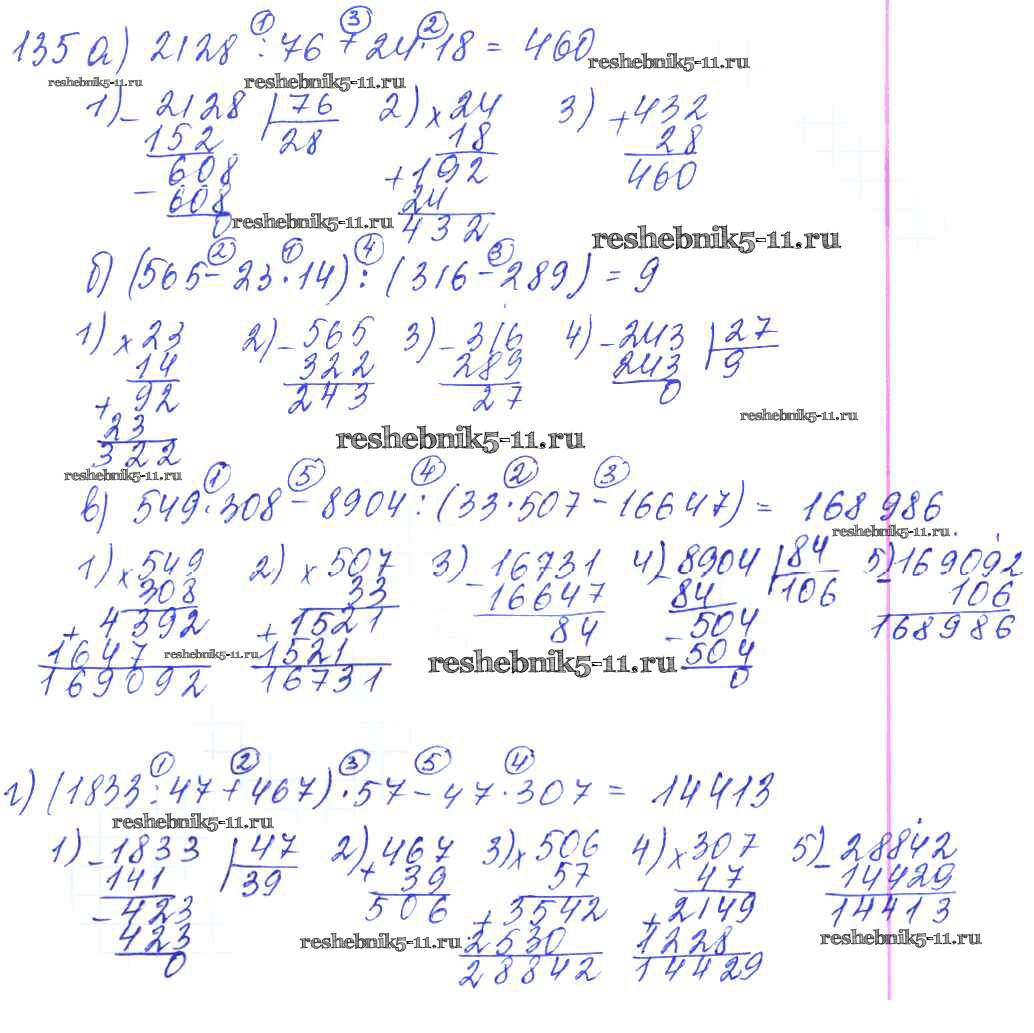 135 а) 2128 : 76 + 24 · 18 = 460
① ③ ②
reshebnik5-11.ru reshebnik5-11.ru reshebnik5-11.ru
1) - 2128 | 76 2) × 24 3) + 432
152 28 18 28
608 + 192 460
- 608 24
0 432
reshebnik5-11.ru reshebnik5-11.ru
② ① ④ ③
б) (565 - 23 · 14) : (316 - 289) = 9
1) × 23 2) - 565 3) - 316 4) - 243 | 27
14 322 289 243 9
+ 92 243 27 0
23
322
reshebnik5-11.ru reshebnik5-11.ru reshebnik5-11.ru
① ⑤ ④ ② ③
в) 549 · 308 - 8904 : (33 · 507 - 16647) = 168 986
reshebnik5-11.ru
1) × 549 2) × 507 3) - 16731 4) - 8904 | 84 5) - 169092
308 33 16647 84 106 106
+ 4392 + 1521 84 - 504 168986
1647 1521 504
169092 16731 0
reshebnik5-11.ru reshebnik5-11.ru
① ② ③ ⑤ ④
г) (1833 : 47 + 467) · 57 - 47 · 307 = 14413
reshebnik5-11.ru
1) - 1833 | 47 2) + 467 3) × 506 4) × 307 5) - 28842
141 39 39 57 47 14429
- 423 506 + 3542 + 2149 14413
423 2530 1228
0 28842 14429
reshebnik5-11.ru reshebnik5-11.ru